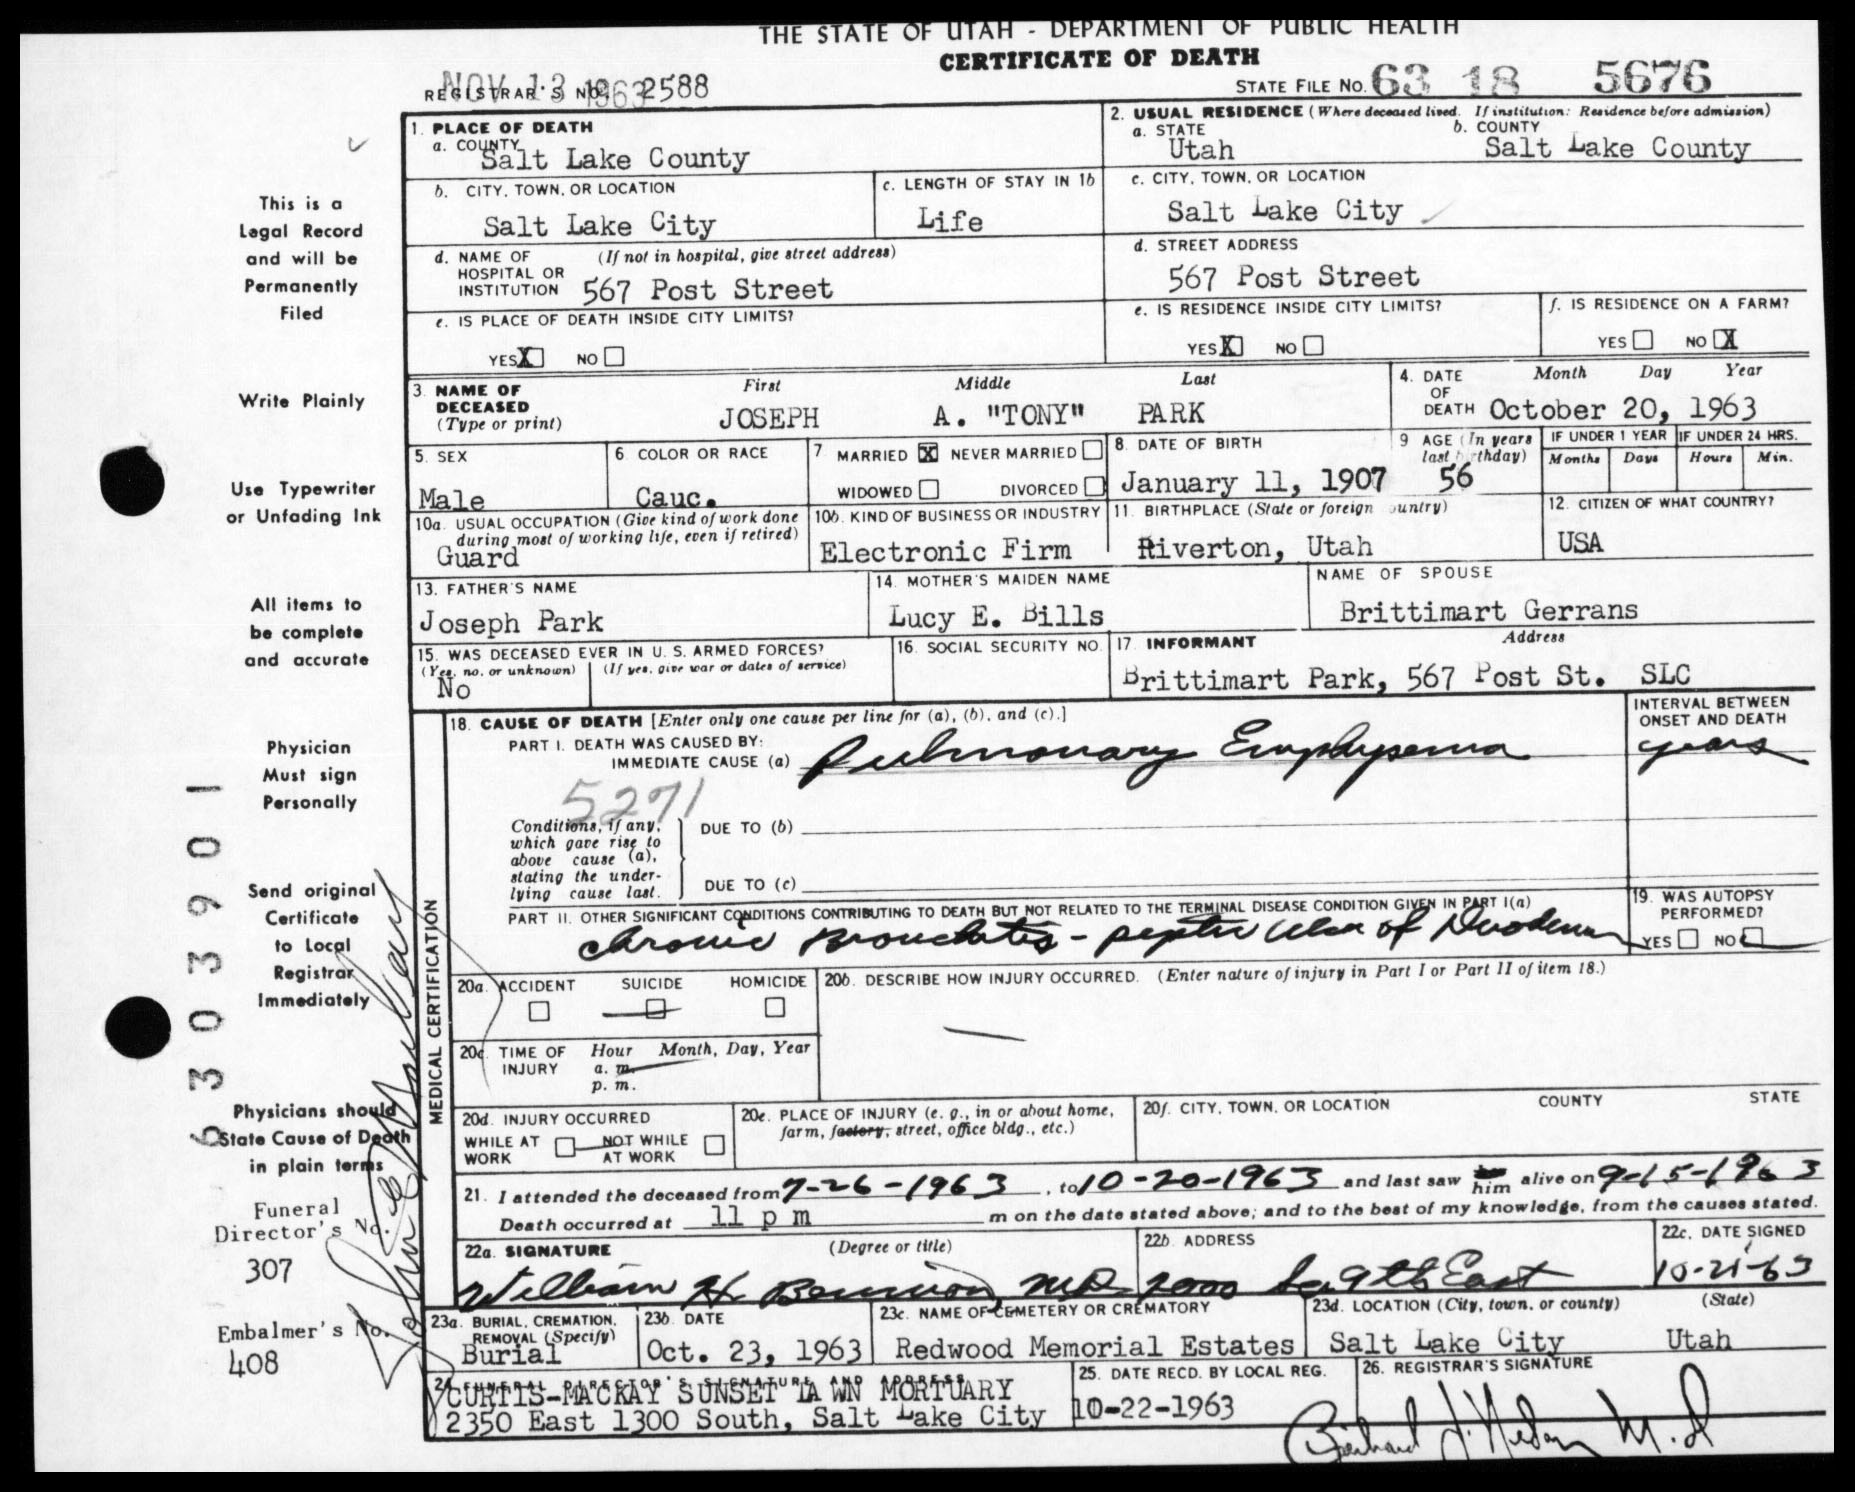 THE STATE OF UTAH - DEPARTMENT OF PUBLIC HEALTH
CERTIFICATE OF DEATH
NOV 13 1963
REGISTRAR'S NO. 2588
STATE FILE NO. 63 18 5676
1. PLACE OF DEATH
a. COUNTY
Salt Lake County
2. USUAL RESIDENCE (Where deceased lived. If institution: Residence before admission)
a. STATE
Utah
b. COUNTY
Salt Lake County
b. CITY, TOWN, OR LOCATION
Salt Lake City
c. LENGTH OF STAY IN 1b
Life
c. CITY, TOWN, OR LOCATION
Salt Lake City
d. NAME OF HOSPITAL OR INSTITUTION (If not in hospital, give street address)
567 Post Street
d. STREET ADDRESS
567 Post Street
e. IS PLACE OF DEATH INSIDE CITY LIMITS?
YES X NO
e. IS RESIDENCE INSIDE CITY LIMITS?
YES X NO
f. IS RESIDENCE ON A FARM?
YES NO X
3. NAME OF DECEASED (Type or print)
First Middle Last
JOSEPH A. "TONY" PARK
4. DATE OF DEATH
Month Day Year
October 20, 1963
5. SEX
Male
6. COLOR OR RACE
Cauc.
7. MARRIED X NEVER MARRIED
WIDOWED DIVORCED
8. DATE OF BIRTH
January 11, 1907
9. AGE (In years last birthday)
56
IF UNDER 1 YEAR
Months Days
IF UNDER 24 HRS.
Hours Min.
10a. USUAL OCCUPATION (Give kind of work done during most of working life, even if retired)
Guard
10b. KIND OF BUSINESS OR INDUSTRY
Electronic Firm
11. BIRTHPLACE (State or foreign country)
Riverton, Utah
12. CITIZEN OF WHAT COUNTRY?
USA
13. FATHER'S NAME
Joseph Park
14. MOTHER'S MAIDEN NAME
Lucy E. Bills
NAME OF SPOUSE
Brittimart Gerrans
15. WAS DECEASED EVER IN U. S. ARMED FORCES?
(Yes, no, or unknown) (If yes, give war or dates of service)
No
16. SOCIAL SECURITY NO.
17. INFORMANT Address
Brittimart Park, 567 Post St. SLC
MEDICAL CERTIFICATION
18. CAUSE OF DEATH [Enter only one cause per line for (a), (b), and (c).]
INTERVAL BETWEEN ONSET AND DEATH
PART I. DEATH WAS CAUSED BY:
IMMEDIATE CAUSE (a) Pulmonary Emphysema
years
5271
Conditions, if any, which gave rise to above cause (a), stating the underlying cause last.
DUE TO (b)
DUE TO (c)
PART II. OTHER SIGNIFICANT CONDITIONS CONTRIBUTING TO DEATH BUT NOT RELATED TO THE TERMINAL DISEASE CONDITION GIVEN IN PART I(a)
Chronic Bronchitis - peptic ulcer of Duodenum
19. WAS AUTOPSY PERFORMED?
YES NO
20a. ACCIDENT SUICIDE HOMICIDE
20b. DESCRIBE HOW INJURY OCCURRED. (Enter nature of injury in Part I or Part II of item 18.)
20c. TIME OF INJURY
Hour Month, Day, Year
a. m.
p. m.
20d. INJURY OCCURRED
WHILE AT WORK NOT WHILE AT WORK
20e. PLACE OF INJURY (e. g., in or about home, farm, factory, street, office bldg., etc.)
20f. CITY, TOWN, OR LOCATION COUNTY STATE
21. I attended the deceased from 7-26-1963, to 10-20-1963 and last saw him alive on 9-15-1963
Death occurred at 11 p m m on the date stated above; and to the best of my knowledge, from the causes stated.
22a. SIGNATURE (Degree or title)
William H. Bennion, M.D.
22b. ADDRESS
2000 So. 9th East
22c. DATE SIGNED
10-21-63
23a. BURIAL, CREMATION, REMOVAL (Specify)
Burial
23b. DATE
Oct. 23, 1963
23c. NAME OF CEMETERY OR CREMATORY
Redwood Memorial Estates
23d. LOCATION (City, town, or county) (State)
Salt Lake City Utah
24. FUNERAL DIRECTOR'S SIGNATURE AND ADDRESS
CURTIS-MACKAY SUNSET LAWN MORTUARY
2350 East 1300 South, Salt Lake City
25. DATE RECD. BY LOCAL REG.
10-22-1963
26. REGISTRAR'S SIGNATURE
M.D
This is a
Legal Record
and will be
Permanently
Filed
Write Plainly
Use Typewriter
or Unfading Ink
All items to
be complete
and accurate
Physician
Must sign
Personally
Send original
Certificate
to Local
Registrar
Immediately
Physicians should
State Cause of Death
in plain terms
Funeral
Director's No.
307
Embalmer's No.
408
6303901